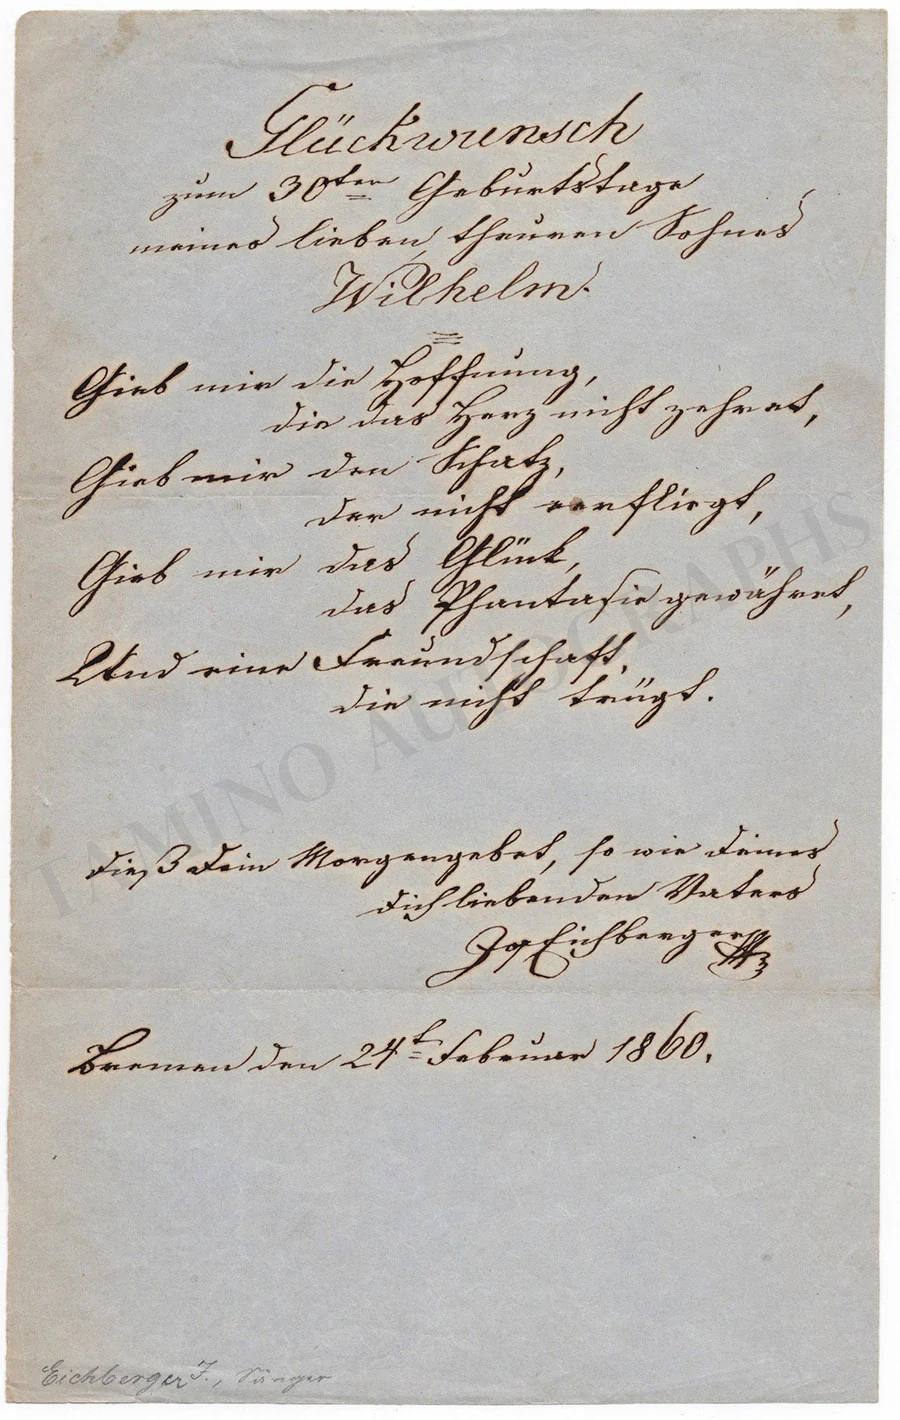 Glückwunsch
zum 30ten Geburtstage
meines lieben, theuren Sohnes
Wilhelm.
Gieb mir die Hoffnung,
die das Herz nicht zehret,
Gieb mir den Schatz,
der nicht verfliegt,
Gieb mir das Glück,
das Phantasie gewähret,
Und eine Freundschaft,
die nicht trügt.
Dieß Dein Morgengebet, so wie Deines
Dich liebenden Vaters
Jos Eichberger
Bremen den 24t Februar 1860.
Eichberger J., Sänger
TAMINO AUTOGRAPHS